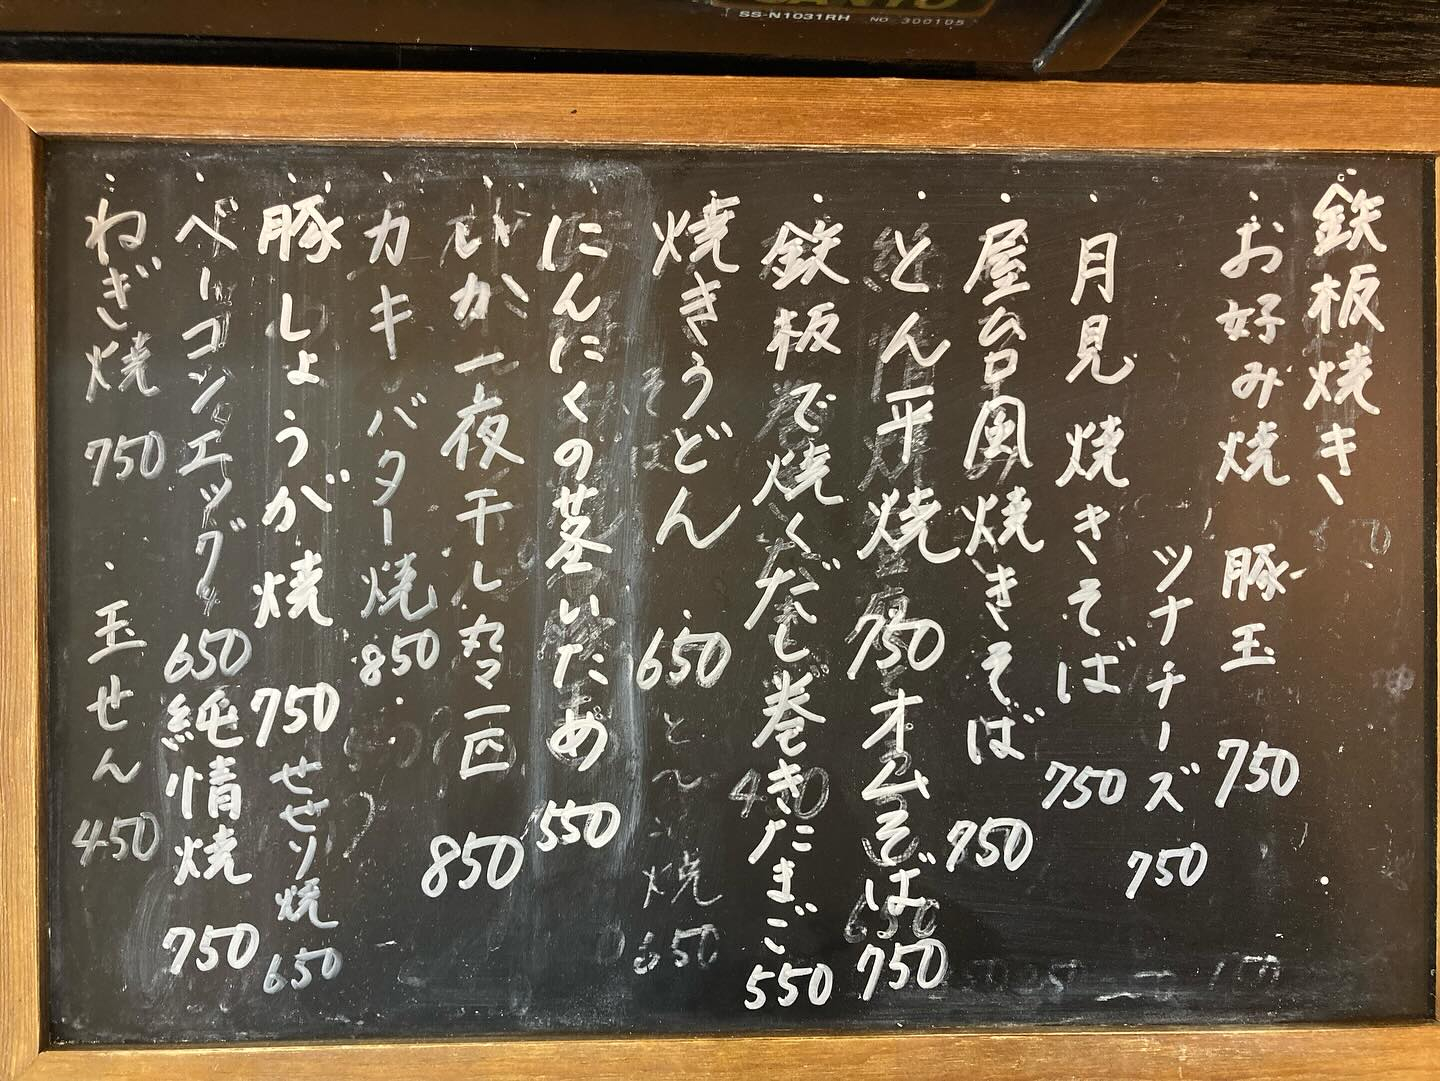 SANYO
SS-N1031RH NO. 300105
鉄板焼き
・お好み焼 豚玉 750
ツナチーズ 750
・月見焼きそば 750
・屋台風焼きそば 750
・とん平焼 750 オムそば 750
・鉄板で焼くだし巻きたまご 550
・焼きうどん 650
とん 焼 650
・にんにくの茎いため 550
いか一夜干し丸々一匹 850
・カキバター焼 850
・豚しょうが焼 750 せせり焼 650
・ベーコンエッグ 650 純情焼 750
・ねぎ焼 750 ・玉せん 450